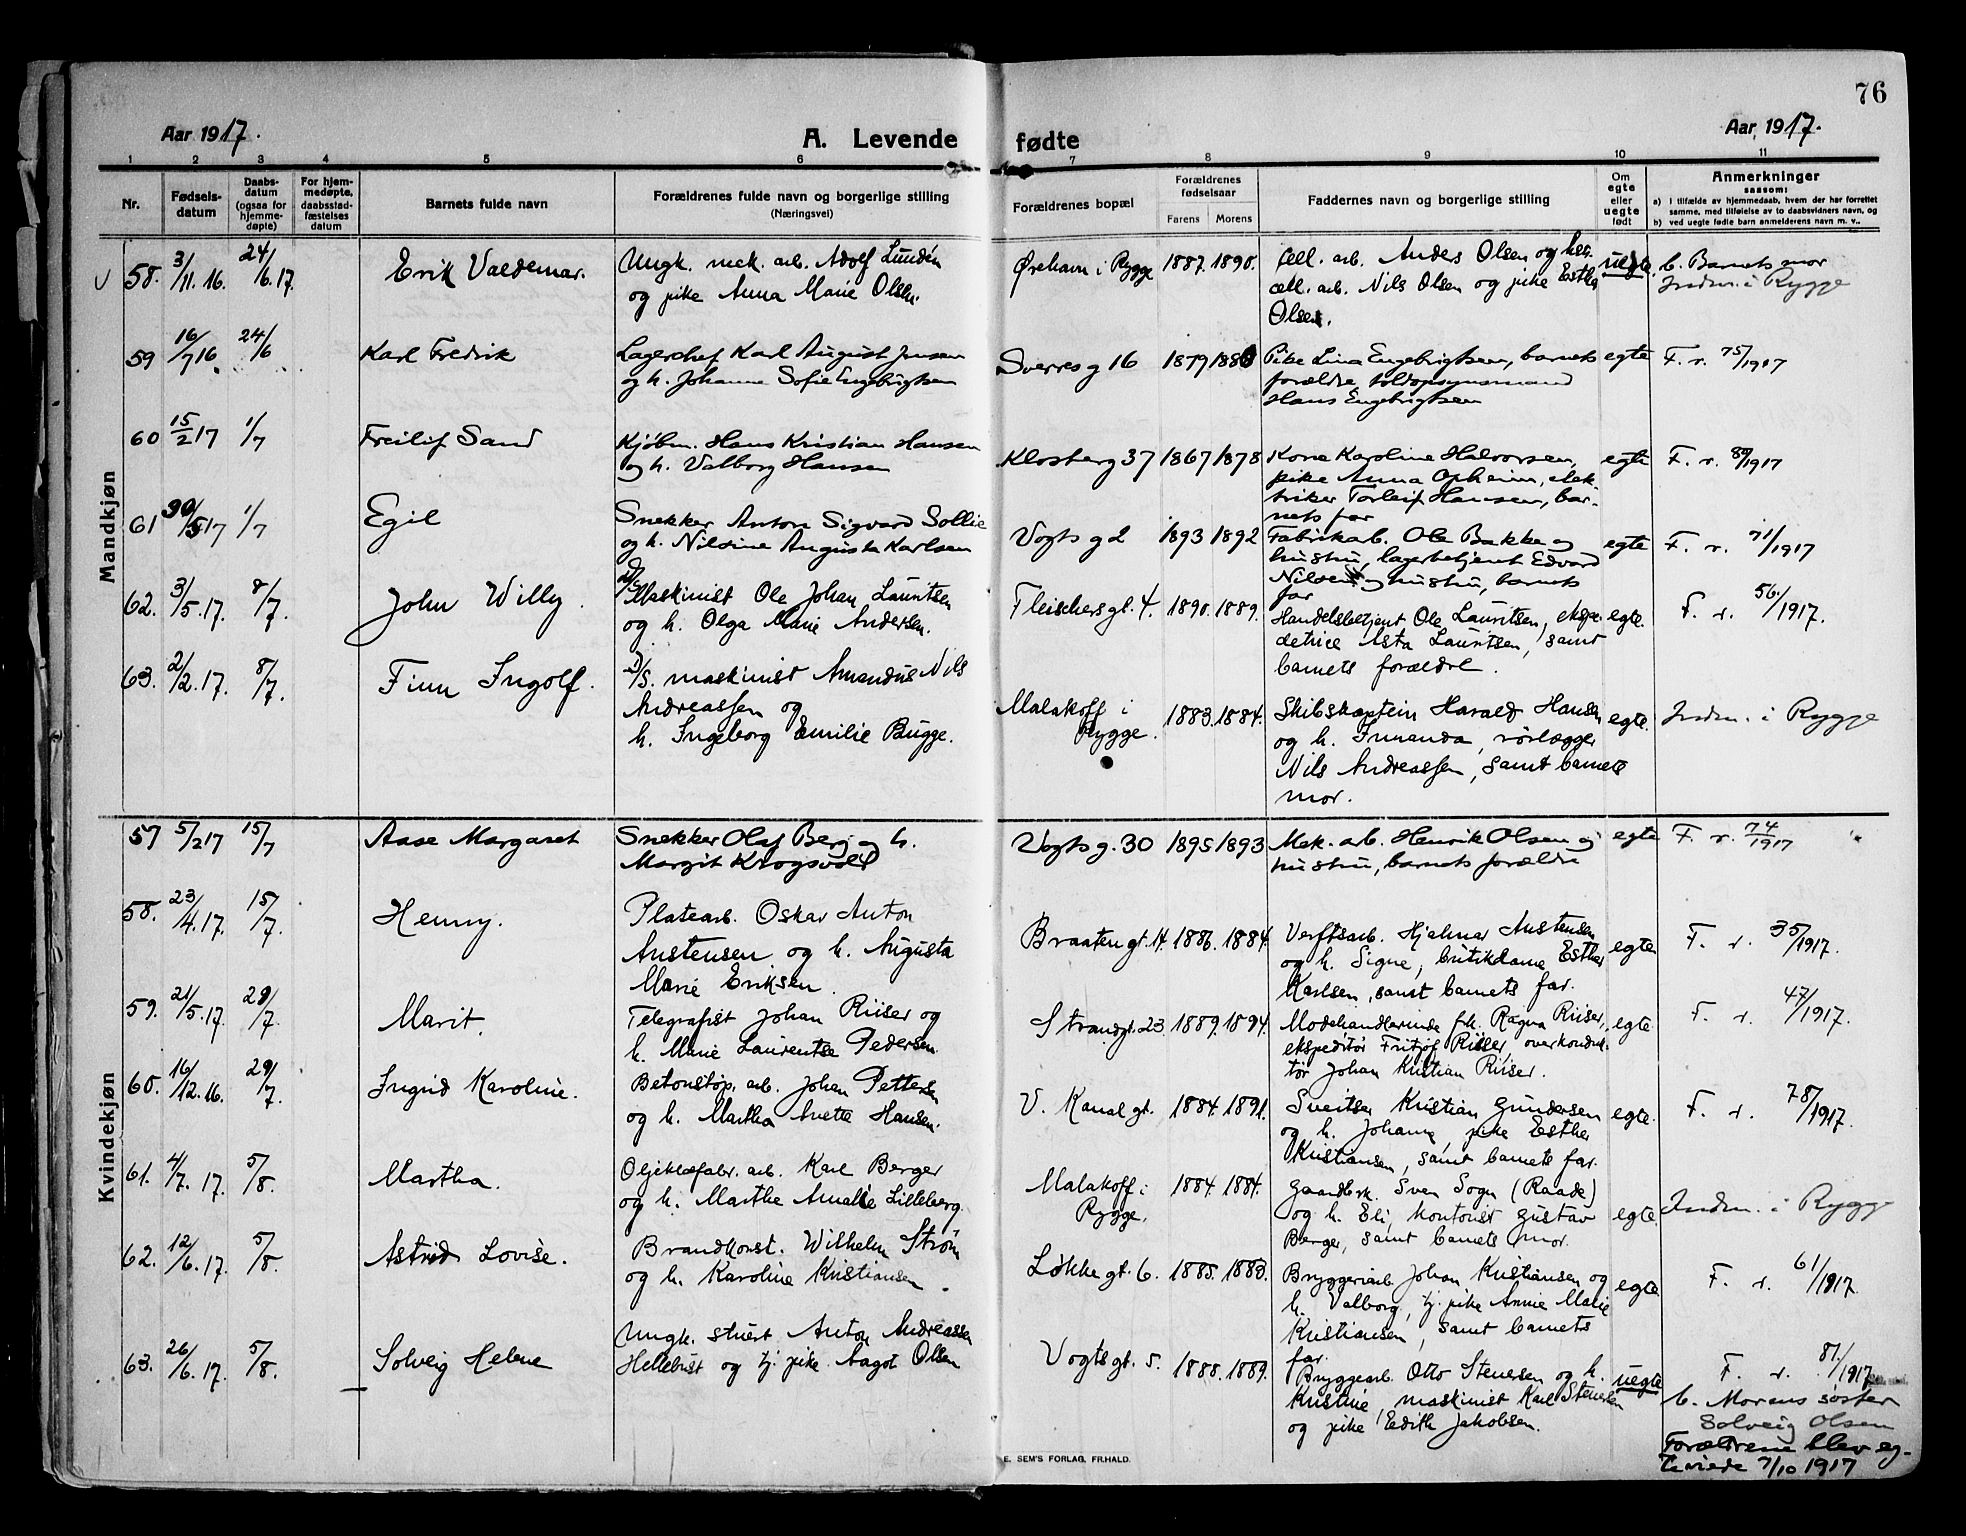 76
Aar 1917. A. Levende fødte Aar 1917.
1 2 3 4 5 6 7 8 9 10 11
Nr.
Fødsels-
datum
Daabs-
datum
(ogsaa for
hjemme-
døpte)
For hjem-
medøpte,
daabsstad-
fæstelses
datum
Barnets fulde navn
Forældrenes fulde navn og borgerlige stilling
(Næringsvei)
Forældrenes bopæl
Forældrenes
fødselsaar
Farens Morens
Faddernes navn og borgerlige stilling
Om
egte
eller
uegte
født
Anmerkninger
saasom:
a) i tilfælde av hjemmedaab, hvem der har forrettet
samme, med tilføielse av to daabsvidners navn, og
b) ved uegte fødte barn anmelderens navn m. v..
Mandkjøn
58. 3/11.16. 24/6.17. Erik Valdemar.
Ungk. mek. arb. Adolf Lundén
og pike Anna Marie Olsen.
Ørehavn i Rygge 1887. 1890.
cell. arb. Anders Olsen og
cell. arb. Nils Olsen og pike Esther
Olsen.
uegte.
b. Barnets mor
Indm. i Rygge
59 16/7 16 24/6 Karl Fredrik
Lagerchef Karl August Jensen
og h. Johanne Sofie Engebrigtsen
Sverres g 16 1879 1880
Pike Lina Engebrigtsen, barnets
forældre, toldopsynsmand
Hans Engebrigtsen
egte
F. r. 75/1917
60 15/2 17 1/7 Freilif Sand
Kjøbm. Hans Kristian Hansen
og h. Valborg Hansen
Klosterg 37 1867 1878
Kone Karoline Halvorsen,
pike Anna Opheim, elek-
triker Torleif Hansen, bar-
nets far
egte
F. r. 89/1917
61 30/5 17 1/7 Egil
Snekker Anton Sigvard Sollie
og h. Nilsine Augusta Karlsen
Vogts g 2 1893 1892
Fabrikarb. Ole Bakke og
hustru, lagerbetjent Edvard
Nilsen og hustru, barnets
far
egte
F. r. 71/1917
62. 3/5.17. 8/7. John Willy.
D/S Maskinist Ole Johan Lauritsen
og h. Olga Marie Andersen.
Fleischers gt. 4. 1890. 1889.
Handelsbetjent Ole Lauritsen, ekspe-
detrice Asta Lauritsen, samt
barnets forældre.
egte.
F. r. 56/1917.
63. 2/2.17. 8/7. Finn Ingolf.
D/S. maskinist Amandus Nils
Andreassen og
h. Ingeborg Emilie Bugge.
Malakoff i
Rygge. 1883. 1884.
Skibskaptein Harald Hansen
og h. Imanda, rørlægger
Nils Andreassen, samt barnets
mor.
egte.
Indm. i Rygge
Kvindekjøn
57 5/2 17 15/7 Aase Margaret
Snekker Olaf Berg og h.
Margit Krogsvold
Vogts g. 30 1895 1893
Mek. arb. Henrik Olsen og
hustru, barnets forældre
egte
F. r. 74/1917
58. 23/4.17. 15/7. Henny.
Platearb. Oskar Anton
Austensen og h. Augusta
Marie Eriksen.
Braaten gt. 14. 1886. 1884.
Verftsarb. Hjalmar Austensen
og h. Signe, butikdame Esther
Karlsen, samt barnets far.
egte
F. r. 35/1917.
59. 21/5.17. 29/7. Marit.
Telegrafist Johan Riiser og
h. Marie Laurentse Pedersen.
Strandgt. 23. 1889. 1894.
Modehandlerinde frk. Ragna Riiser,
ekspeditør Fritjof Riiser overkonduk-
tør Johan Kristian Riiser.
egte.
F. r. 47/1917.
60. 16/12.16. 29/7. Ingrid Karoline.
Betonstøp. arb. Johan Pettersen
og h. Martha Anette Hansen.
V. Kanal gt. 1884. 1891.
Sveitser Kristian Gundersen
og h. Johanne, pike Esther
Kristiansen, samt barnets far.
egte.
F. r. 78/1917.
61. 4/7. 17. 5/8. Martha.
Oljeklæfabr. arb. Karl Berger
og h. Marthe Amalie Lilleberg.
Malakoff i
Rygge. 1884. 1884.
Gaardbrk. Sven Sogn (Raade)
og h. Eli, kontorist Gustav
Berger, samt barnets mor.
egte.
Indm. i Rygge
62. 12/6.17. 5/8. Astrid Lovise.
Brandkonst. Wilhelm Strøm
og h. Karoline Kristiansen.
Løkke gt. 6. 1885. 1883.
Bryggeriarb. Johan Kristiansen og
h. Valborg, tj. pike Annie Marie
Kristiansen, samt barnets
far.
egte
F. r. 61/1917.
63. 26/6.17. 5/8. Solveig Helene
Ungk. stuert Anton Andreassen
Hellebust og tj. pike Aagot Olsen
Vogts gt. 5. 1888. 1889.
Bryggearb. Otto Stenersen og h.
Kristine, maskinist Karl Stenersen
og pike Edith Jakobsen.
uegte
F. r. 81/1917
b. Morens søster
Solveig Olsen
Forældrene blev eg-
teviede 7/10 1917
E. SEM'S FORLAG, FR.HALD.